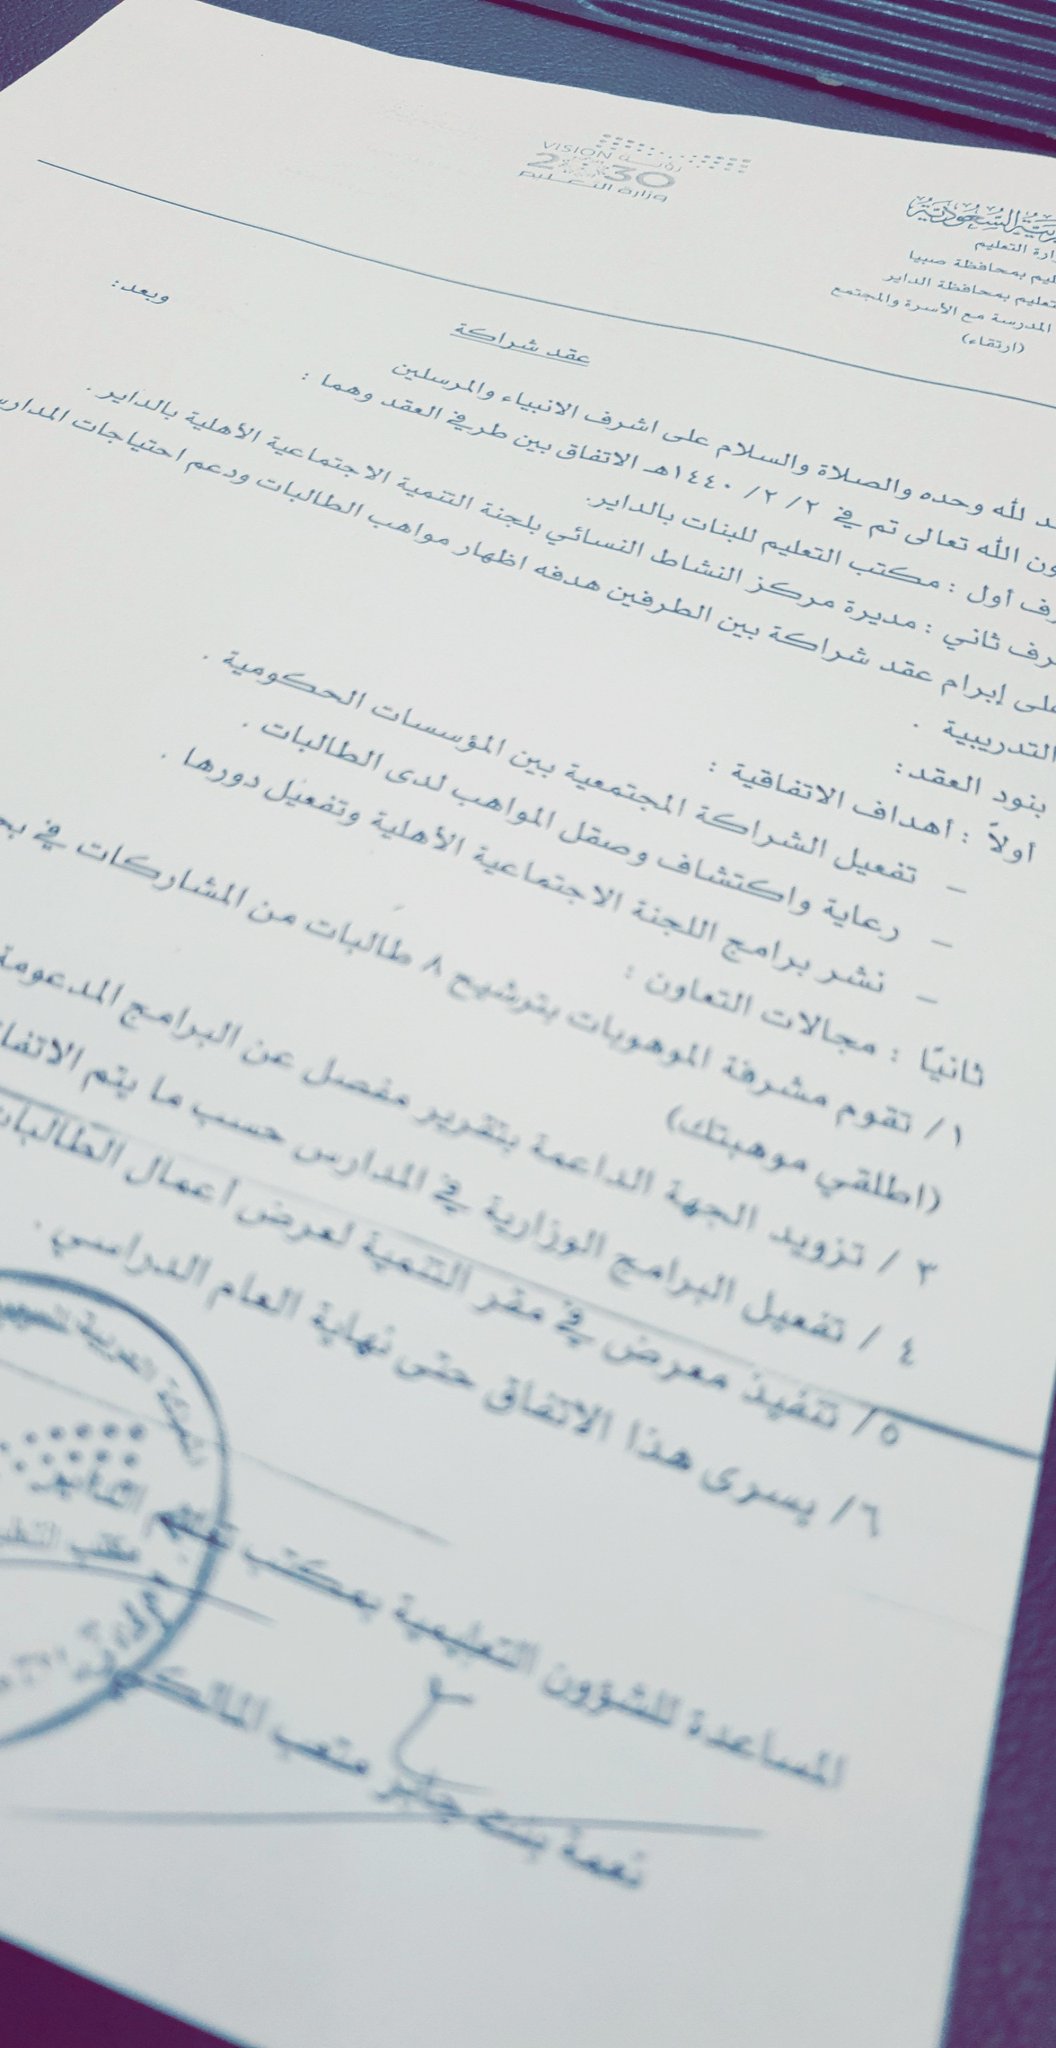 VISION رؤية
2030
وزارة التعليم
وزارة التعليم
بمحافظة صبيا
التعليم بمحافظة الداير
المدرسة مع الأسرة والمجتمع
(ارتقاء)
عقد شراكة
لله وحده والصلاة والسلام على اشرف الانبياء والمرسلين وبعد:
الله تعالى تم في ٢ / ٢ / ١٤٤٠هـ الاتفاق بين طرفي العقد وهما :
أول : مكتب التعليم للبنات بالداير.
ثاني : مديرة مركز النشاط النسائي بلجنة التنمية الاجتماعية الأهلية بالداير .
على إبرام عقد شراكة بين الطرفين هدفه اظهار مواهب الطالبات ودعم احتياجات
التدريبية .
بنود العقد:
أولاً : أهداف الاتفاقية :
- تفعيل الشراكة المجتمعية بين المؤسسات الحكومية .
- رعاية واكتشاف وصقل المواهب لدى الطالبات .
- نشر برامج اللجنة الاجتماعية الأهلية وتفعيل دورها .
ثانيًا : مجالات التعاون :
١/ تقوم مشرفة الموهوبات بترشيح ٨ طالبات من المشاركات في
(اطلقي موهبتك)
٣ / تزويد الجهة الداعمة بتقرير مفصل عن البرامج المدعومة
٤ / تفعيل البرامج الوزارية في المدارس حسب ما يتم
٥/ تنفيذ معرض في مقر التنمية لعرض أعمال الطالبات
٦/ يسرى هذا الاتفاق حتى نهاية العام الدراسي .
المساعدة للشؤون التعليمية بمكتب تعليم الداير
نعمة بنت جابر متعب المالكي